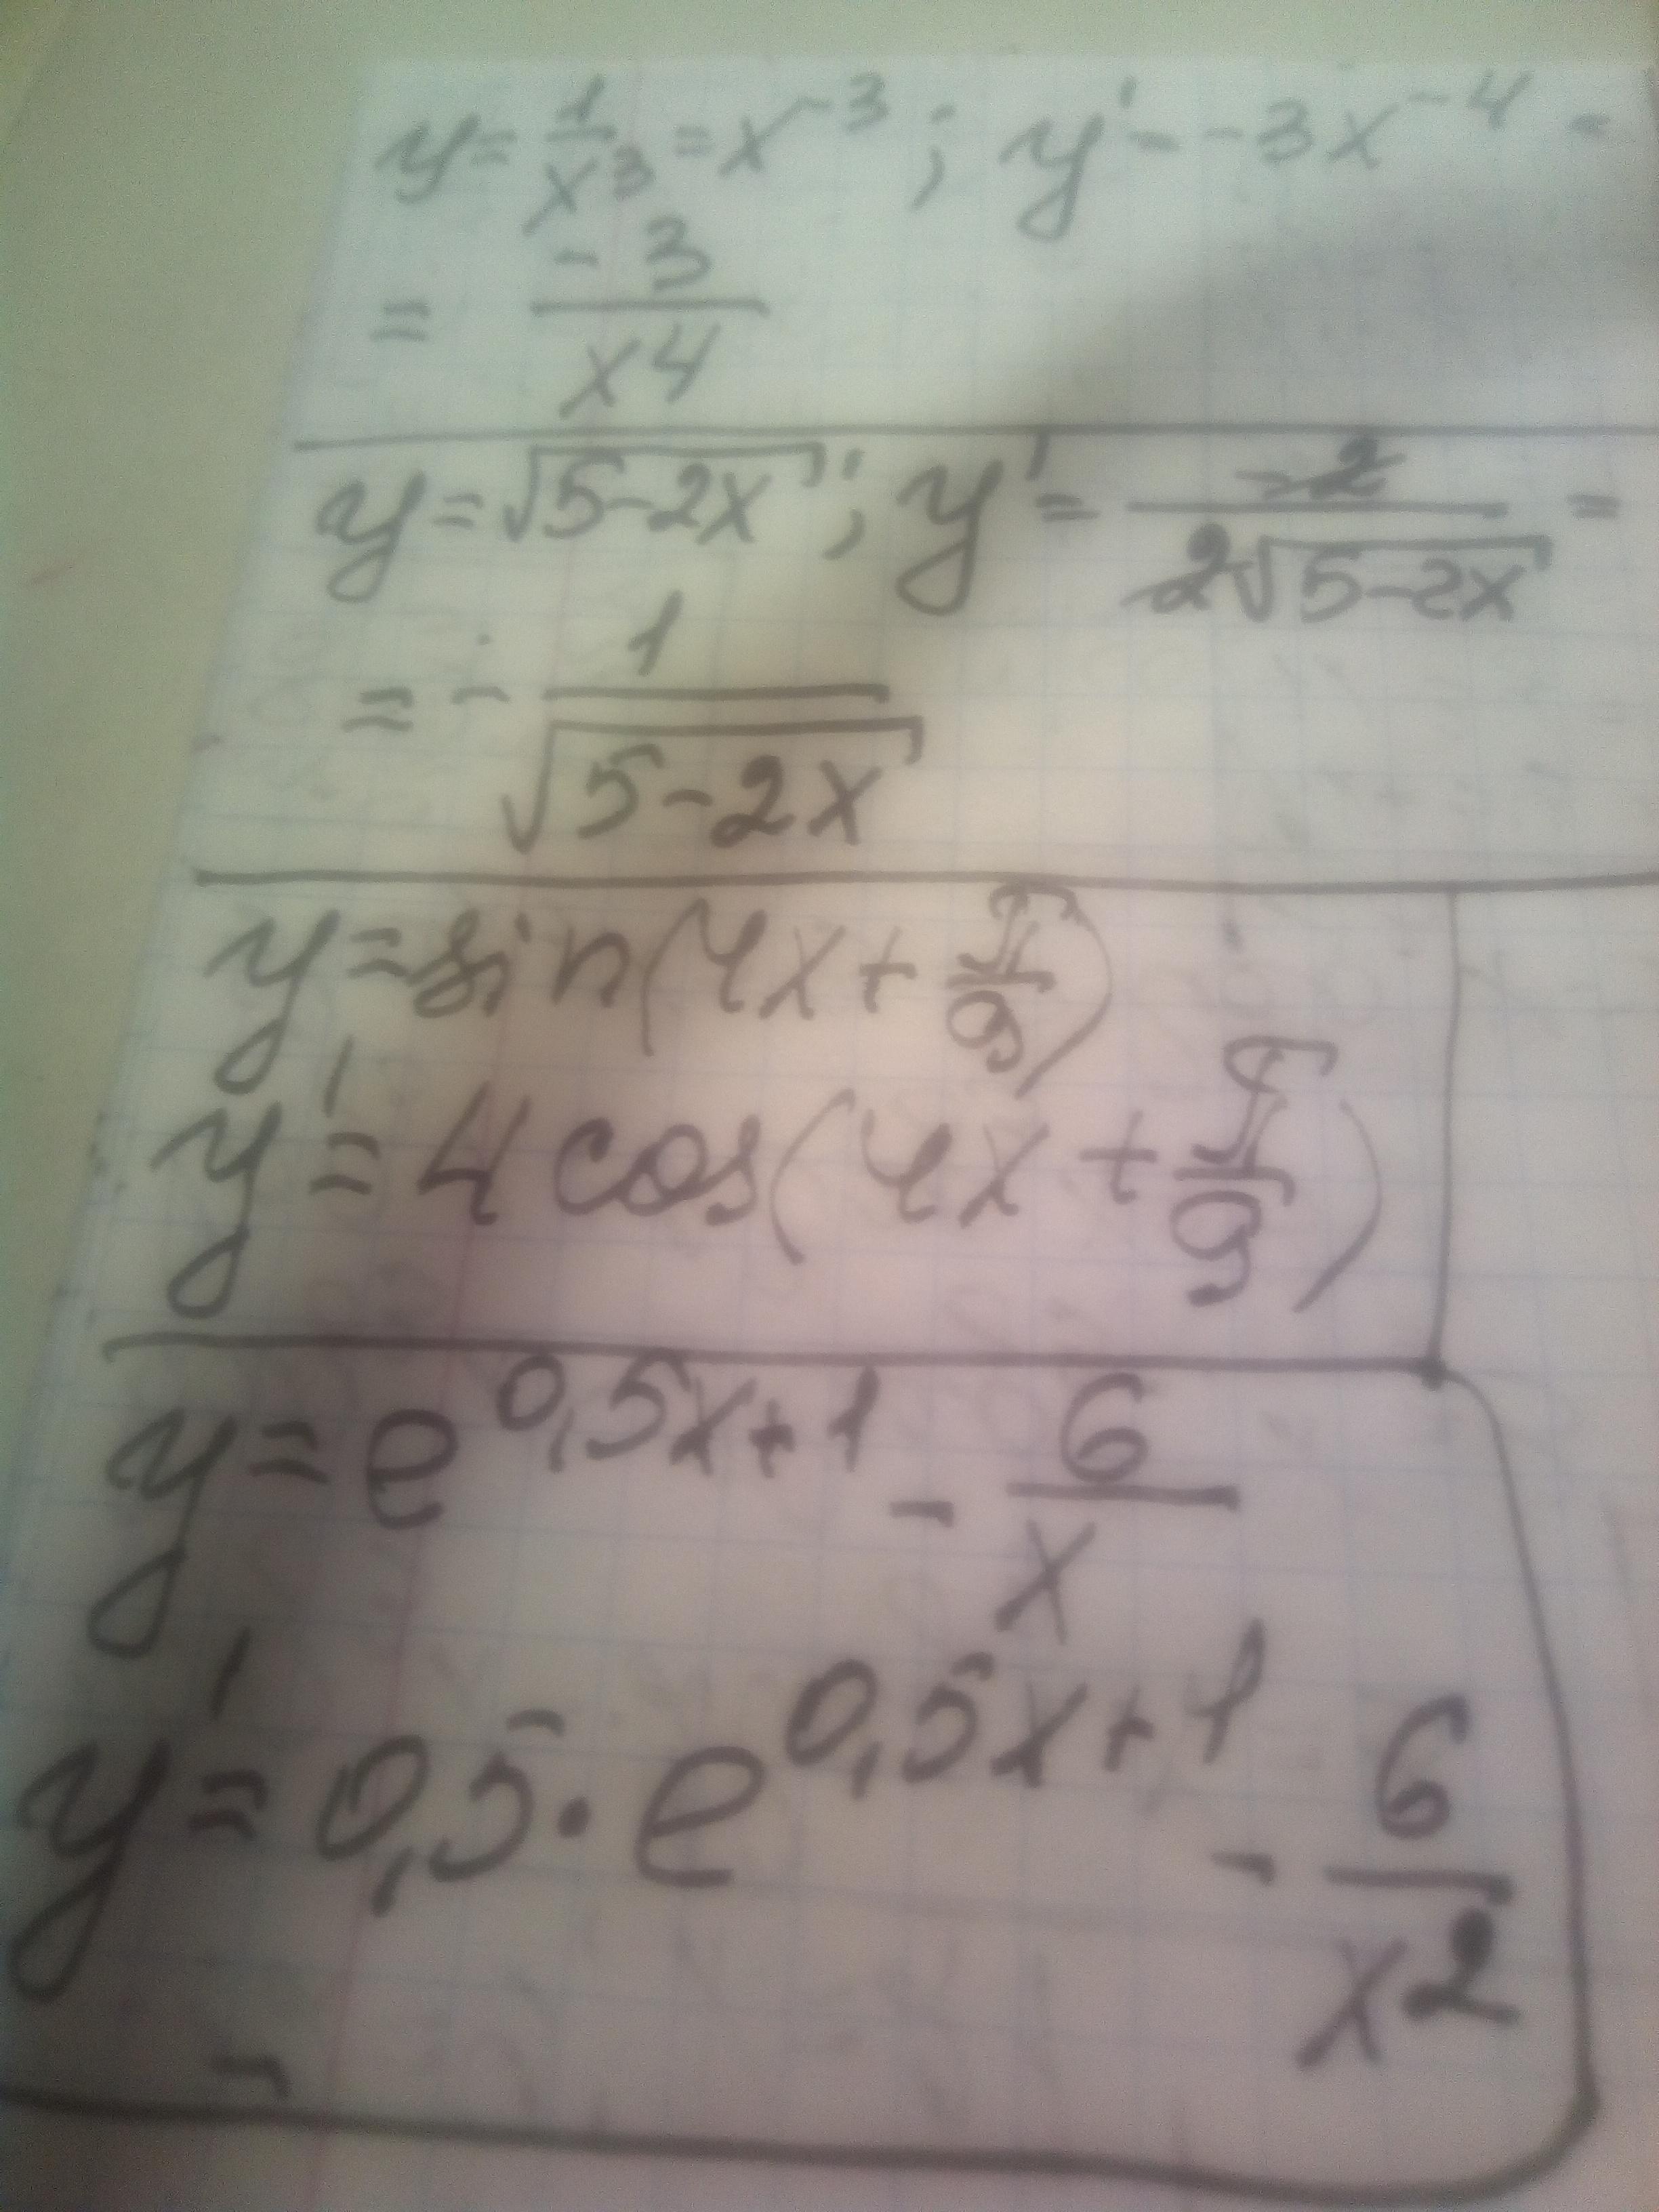 y = 1/x³ = x⁻³ ; y' = -3x⁻⁴ =
= -3/x⁴
y = √(5-2x) ; y' = -2/(2√(5-2x)) =
= - 1/√(5-2x)
y = sin(4x + π/9)
y' = 4 cos(4x + π/9)
y = e^(0,5x+1) - 6/x
y' = 0,5 · e^(0,5x+1) - 6/x²